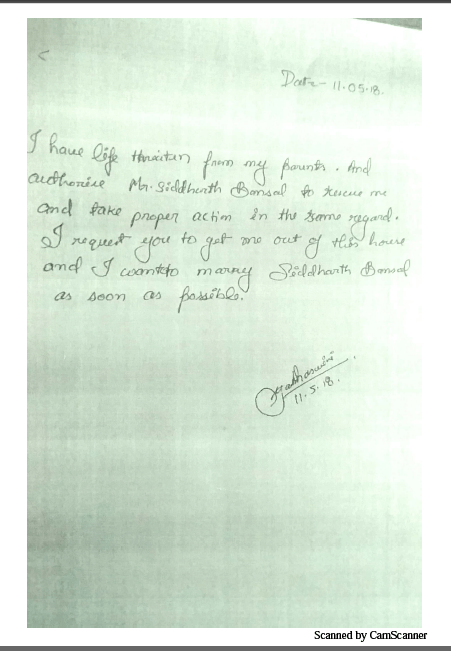 Date - 11.05.18.
I have life threaten from my parents. And
authorise Mr. Siddharth Bansal to rescue me
and take proper action in the same regard.
I request you to get me out of this house
and I want to marry Siddharth Bansal
as soon as possible.
Yashaswini
11.5.18.
Scanned by CamScanner